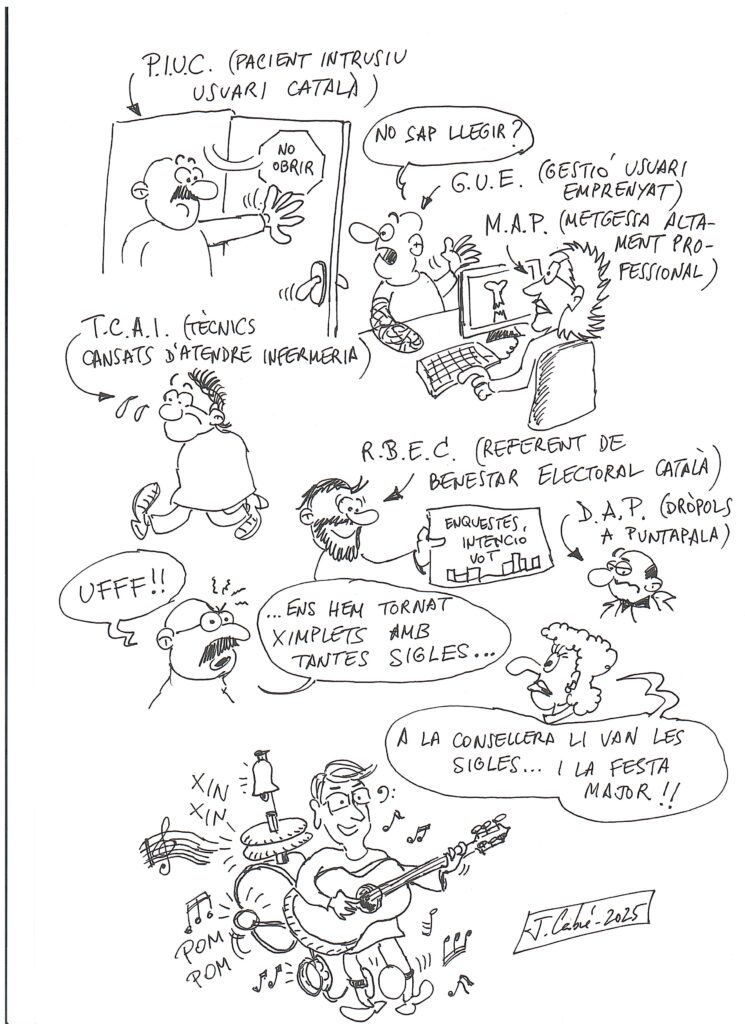 P.I.U.C. (PACIENT INTRUSIU
USUARI CATALÀ)
NO
OBRIR
NO SAP LLEGIR?
G.U.E. (GESTIÓ USUARI
EMPRENYAT)
M.A.P. (METGESSA ALTA-
MENT PRO-
FESSIONAL)
T.C.A.I. (TÈCNICS
CANSATS D'ATENDRE INFERMERIA)
R.B.E.C. (REFERENT DE
BENESTAR ELECTORAL CATALÀ)
ENQUESTES,
INTENCIO
VOT
D.A.P. (DRÒPOLS
A PUNTAPALA)
UFFF!!
...ENS HEM TORNAT
XIMPLETS AMB
TANTES SIGLES...
A LA CONSELLERA LI VAN LES
SIGLES... I LA FESTA
MAJOR!!
XIN
XIN
POM
POM
J. Cabré-2025